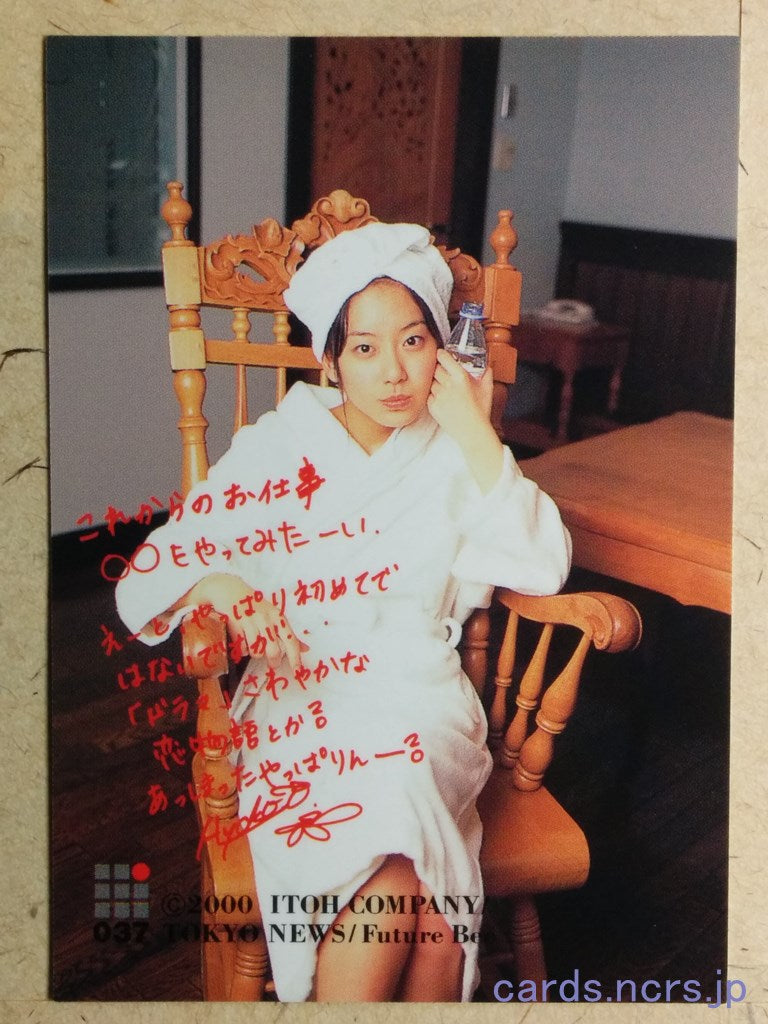 これからのお仕事
○○をやってみたーい.
えーと、やっぱり初めてで
はないですが・・・
「ドラマ」さわやかな
恋物語とか?
あっ またやっぱりんー?
037 ©2000 ITOH COMPANY
TOKYO NEWS/Future Bee
cards.ncrs.jp